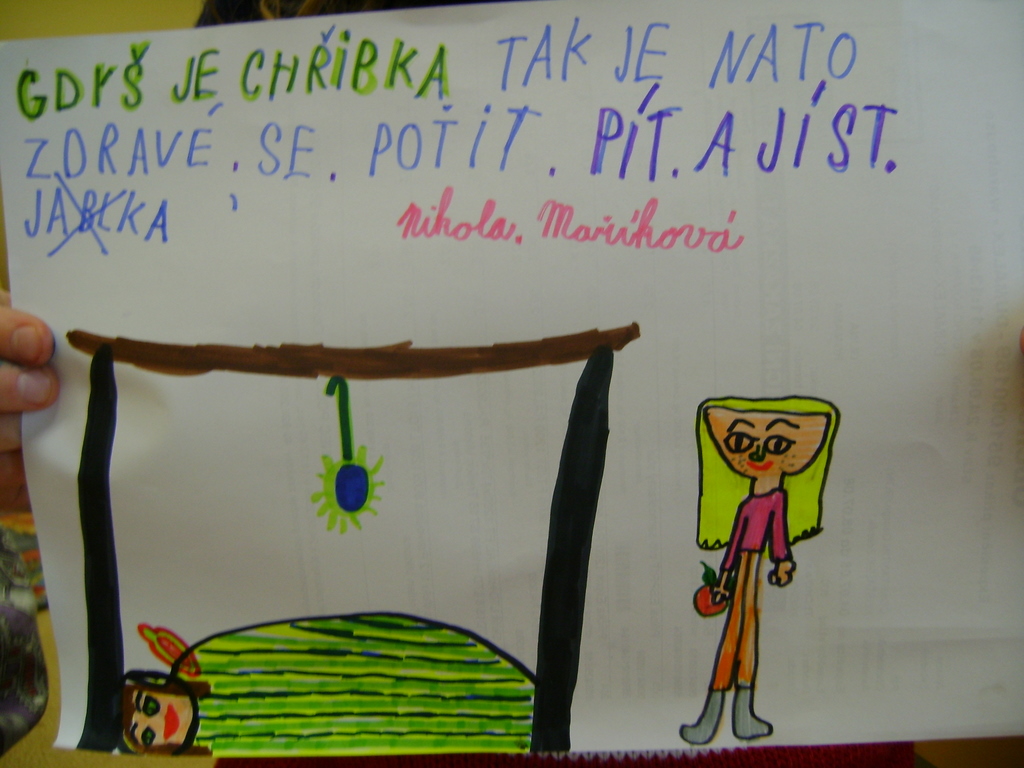 GDYŠ JE CHŘIBKA TAK JE NATO
ZDRAVÉ. SE. POTIT. PÍT. A JÍST.
JABLKA
nikola. Maříková